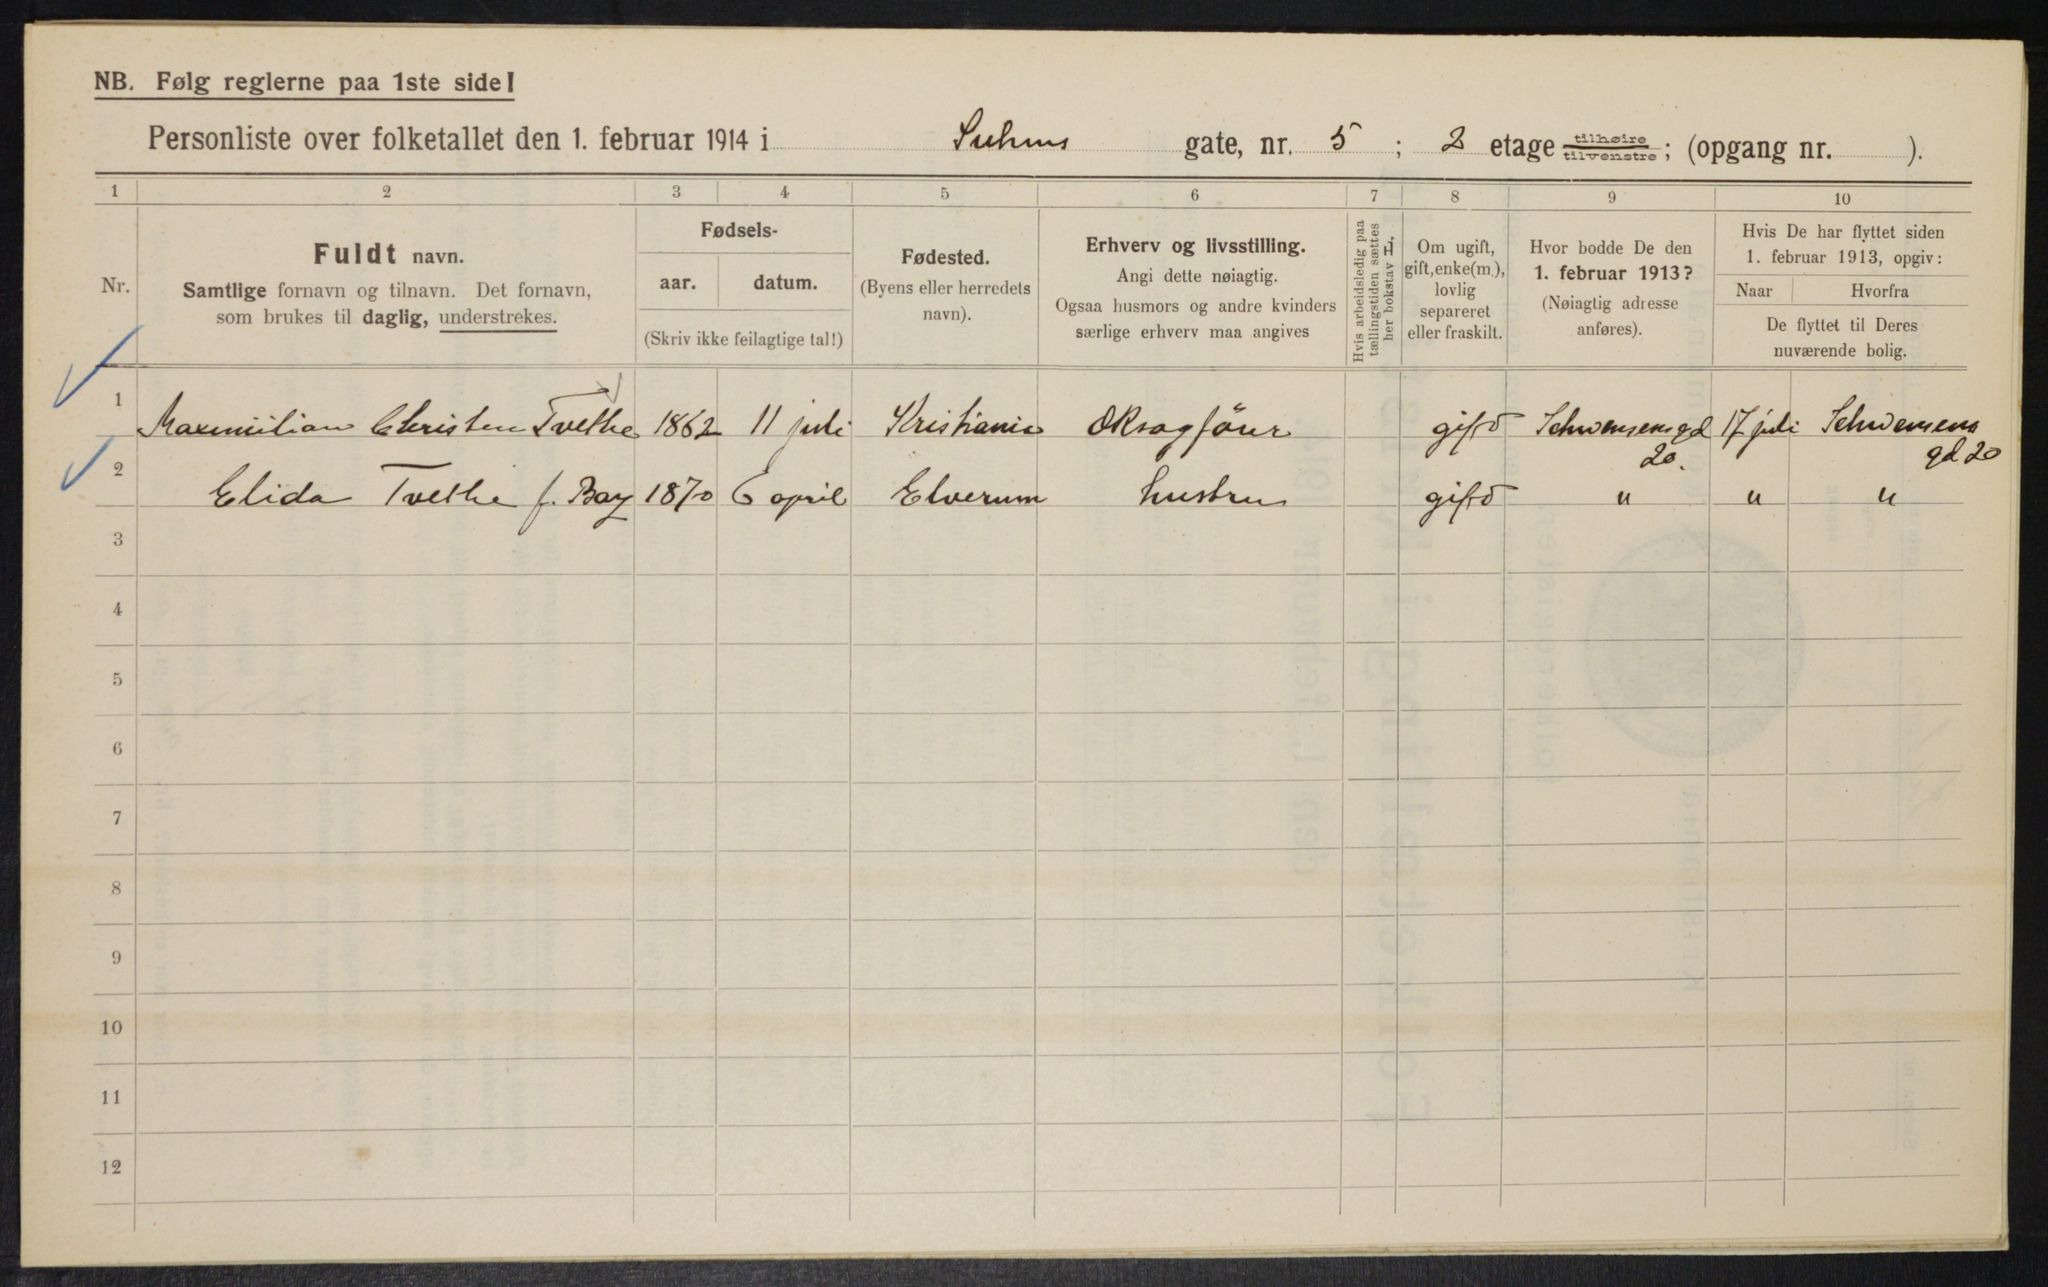 NB. Følg reglerne paa 1ste side!
Personliste over folketallet den 1. februar 1914 i Suhms gate, nr. 5 ; 2 etage tilhøire/tilvenstre; (opgang nr. ).
1 2 3 4 5 6 7 8 9 10
Nr.
Fuldt navn.
Samtlige fornavn og tilnavn. Det fornavn,
som brukes til daglig, understrekes.
Fødsels-
aar. datum.
(Skriv ikke feilagtige tal!)
Fødested.
(Byens eller herredets
navn).
Erhverv og livsstilling.
Angi dette nøiagtig.
Ogsaa husmors og andre kvinders
særlige erhverv maa angives
Hvis arbeidsledig paa
tællingstiden sættes
her bokstav L.
Om ugift,
gift, enke(m.),
lovlig
separeret
eller fraskilt.
Hvor bodde De den
1. februar 1913?
(Nøiagtig adresse
anføres).
Hvis De har flyttet siden
1. februar 1913, opgiv:
Naar Hvorfra
De flyttet til Deres
nuværende bolig.
1 Maximilian Christen Tvethe 1862 11 juli Kristiania OKsagförer gift Schwensensgd 20. 17 juli Schwensens gd 20
2 Elida Tvethe f. Bay 1870 6 april Elverum hustru gift " " "
3
4
5
6
7
8
9
10
11
12